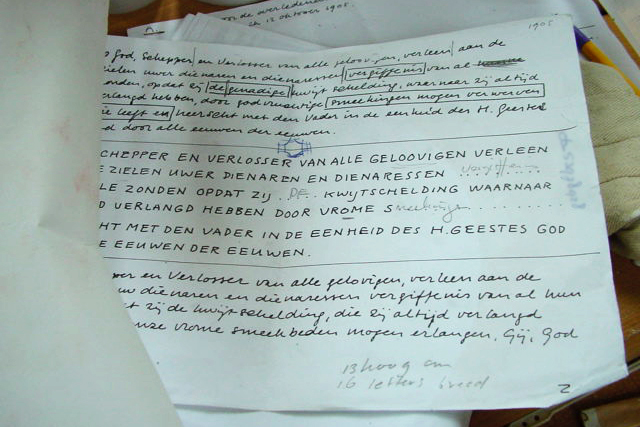 oor de overleden
12 oktober 1905.
1905
God, Schepper en Verlosser van alle geloovigen, verleen aan de
zielen uwer dienaren en dienaressen vergiffenis van al
zonden, opdat zij de genadige kwijtschelding, waarnaar zij altijd
verlangd hebben, door godvruchtige smeekingen mogen verwerven
die leeft en heerscht met den Vader in de eenheid des H. Geestes
God door alle eeuwen der eeuwen.
CHEPPER EN VERLOSSER VAN ALLE GELOOVIGEN VERLEEN
E ZIELEN UWER DIENAREN EN DIENARESSEN
LE ZONDEN OPDAT ZIJ .. DE .. KWIJTSCHELDING WAARNAAR
D VERLANGD HEBBEN DOOR VROME Smeekings
HT MET DEN VADER IN DE EENHEID DES H. GEESTES GOD
E EEUWEN DER EEUWEN.
per en Verlosser van alle gelovigen, verleen aan de
uw dienaren en dienaressen vergiffenis van al hun
t zij de kwijtschelding, die zij altijd verlangd
onze vrome smeekbeden mogen erlangen. Gij, God
13 hoog cm
16 letters breed
2